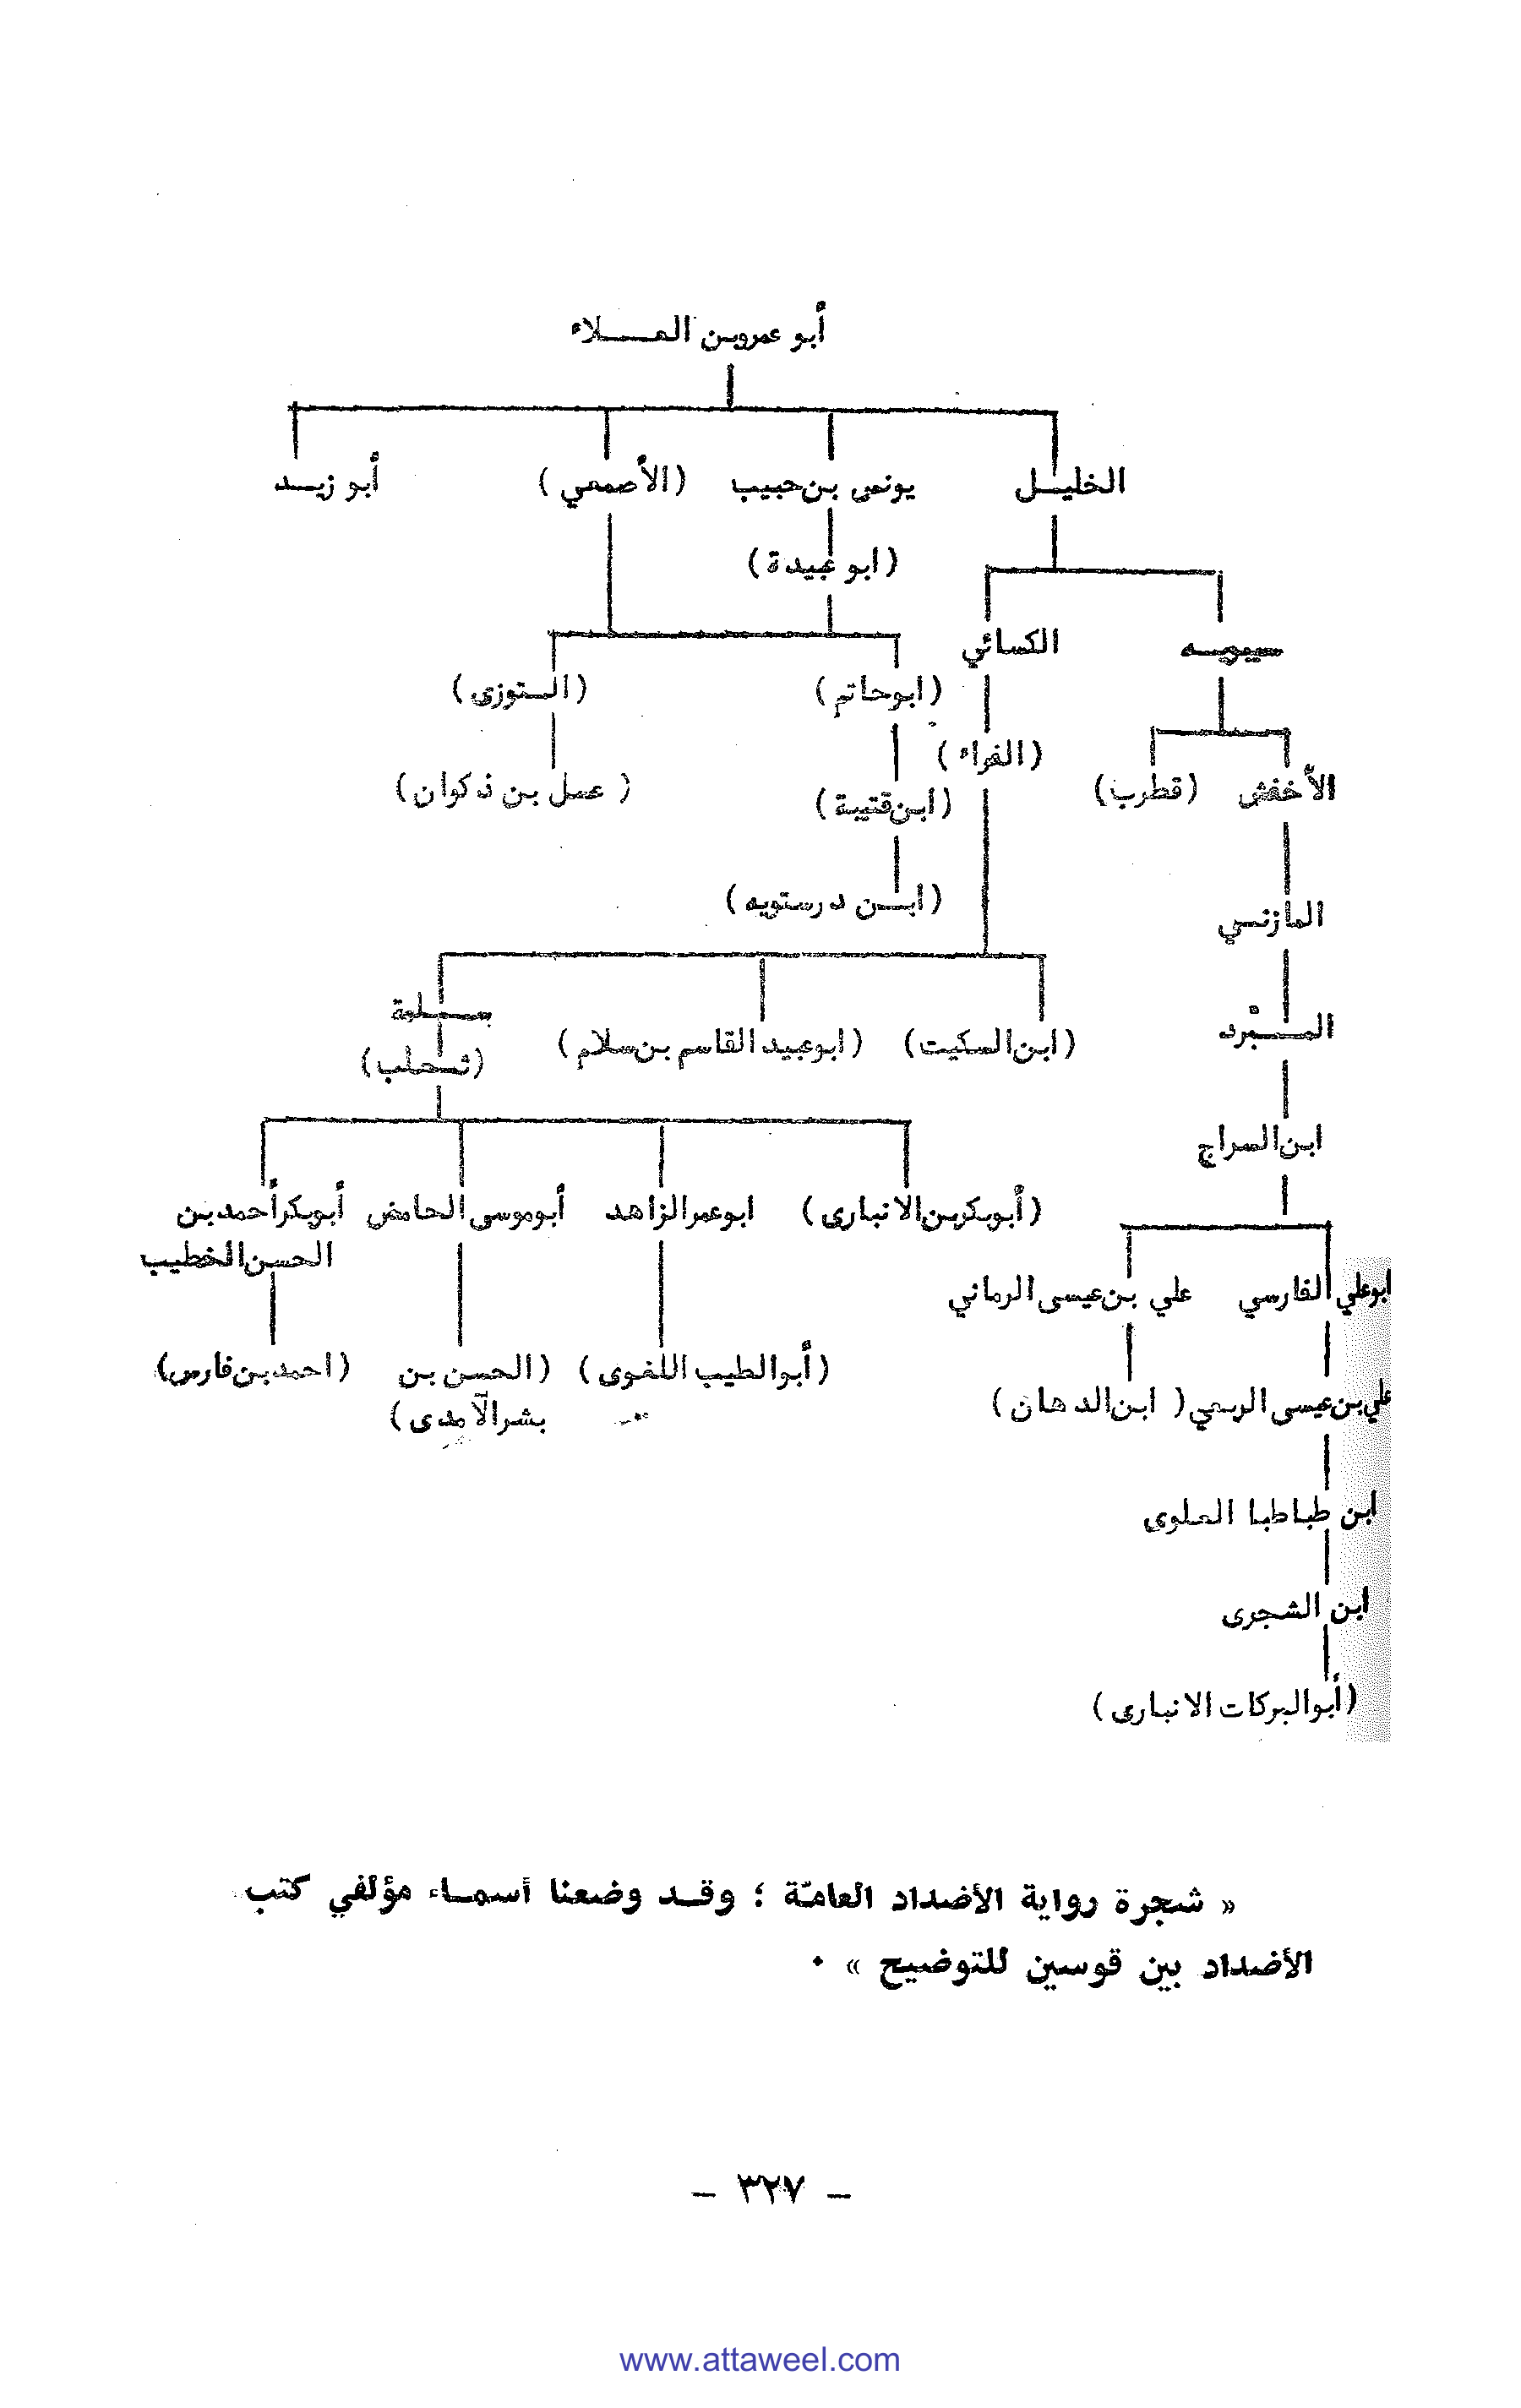 أبو عمرو بن العلاء
الخليل يونس بن حبيب (الأصمعي) أبو زيد
(ابو عبيدة)
سيبويه الكسائي
(ابوحاتم) (التوزى)
(الفراء)
الأخفش (قطرب) (ابن قتيبة) (عسل بن ذكوان)
المازني (ابن درستويه)
سلمة
المبّرد (ابن السكيت) (ابوعبيد القاسم بن سلام) (ثعلب)
ابن السراج
(أبوبكر بن الانبارى) ابوعمر الزاهد أبوموسى الحامض أبوبكر أحمد بن
الحسن الخطيب
ابوعلي الفارسي علي بن عيسى الرماني
(أبو الطيب اللغوى) (الحسن بن (احمد بن فارس)
بشر الآمدى)
علي بن عيسى الربعي (ابن الدهان)
ابن طباطبا العلوى
ابن الشجرى
(أبو البركات الانبارى)
« شجرة رواية الأضداد العامّة ؛ وقد وضعنا أسماء مؤلفي كتب
الأضداد بين قوسين للتوضيح » ٠
- ٣٢٧ -
www.attaweel.com